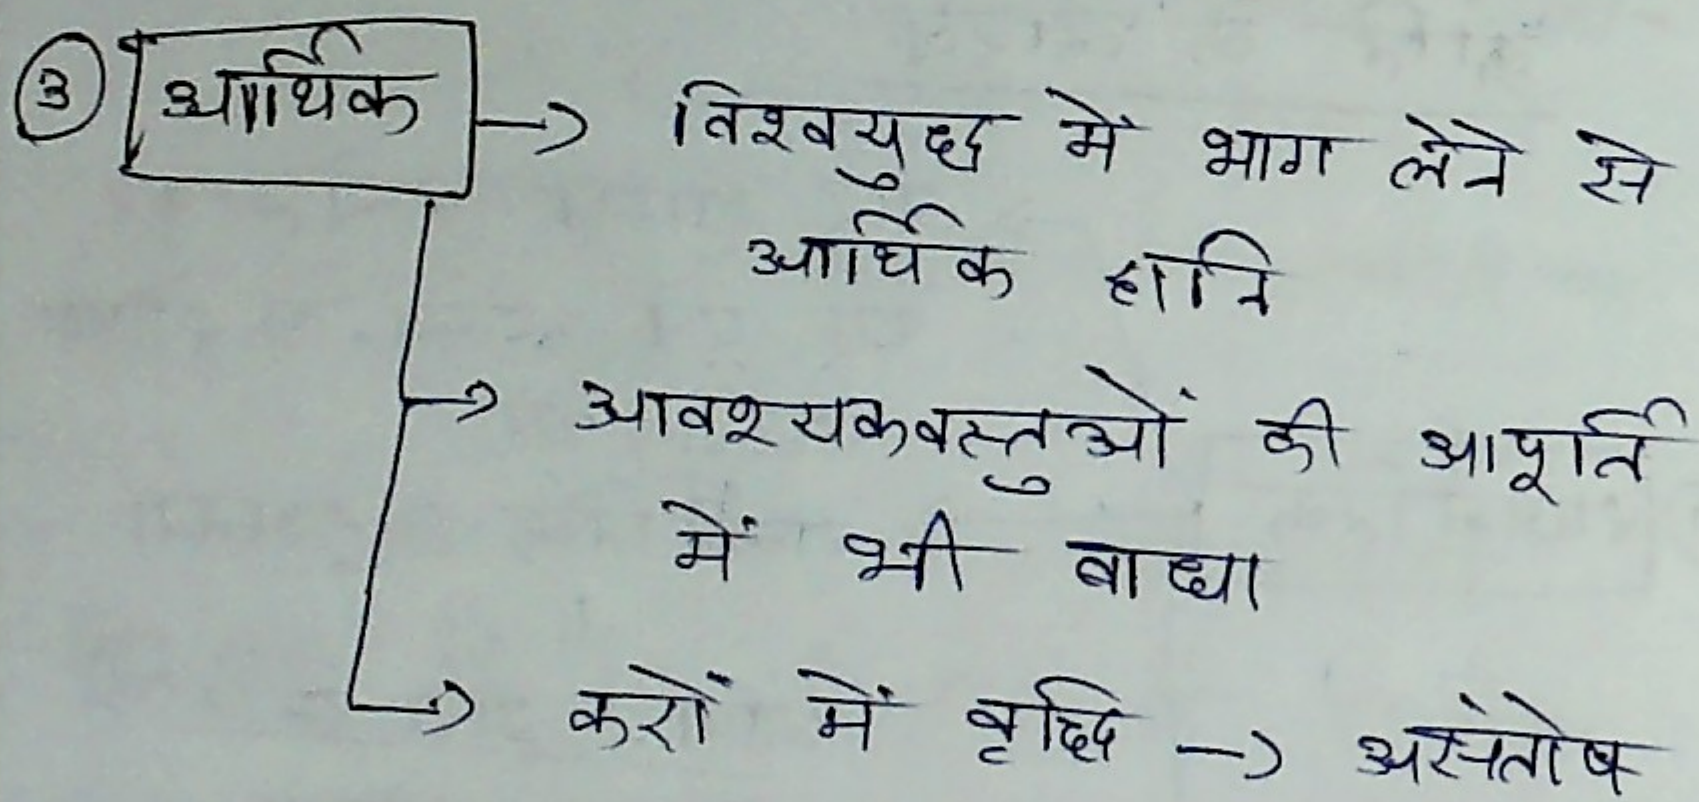 ③ आर्थिक → विश्वयुद्ध में भाग लेने से
आर्थिक हानि
→ आवश्यकवस्तुओं की आपूर्ति
में भी बाधा
→ करों में वृद्धि → असंतोष